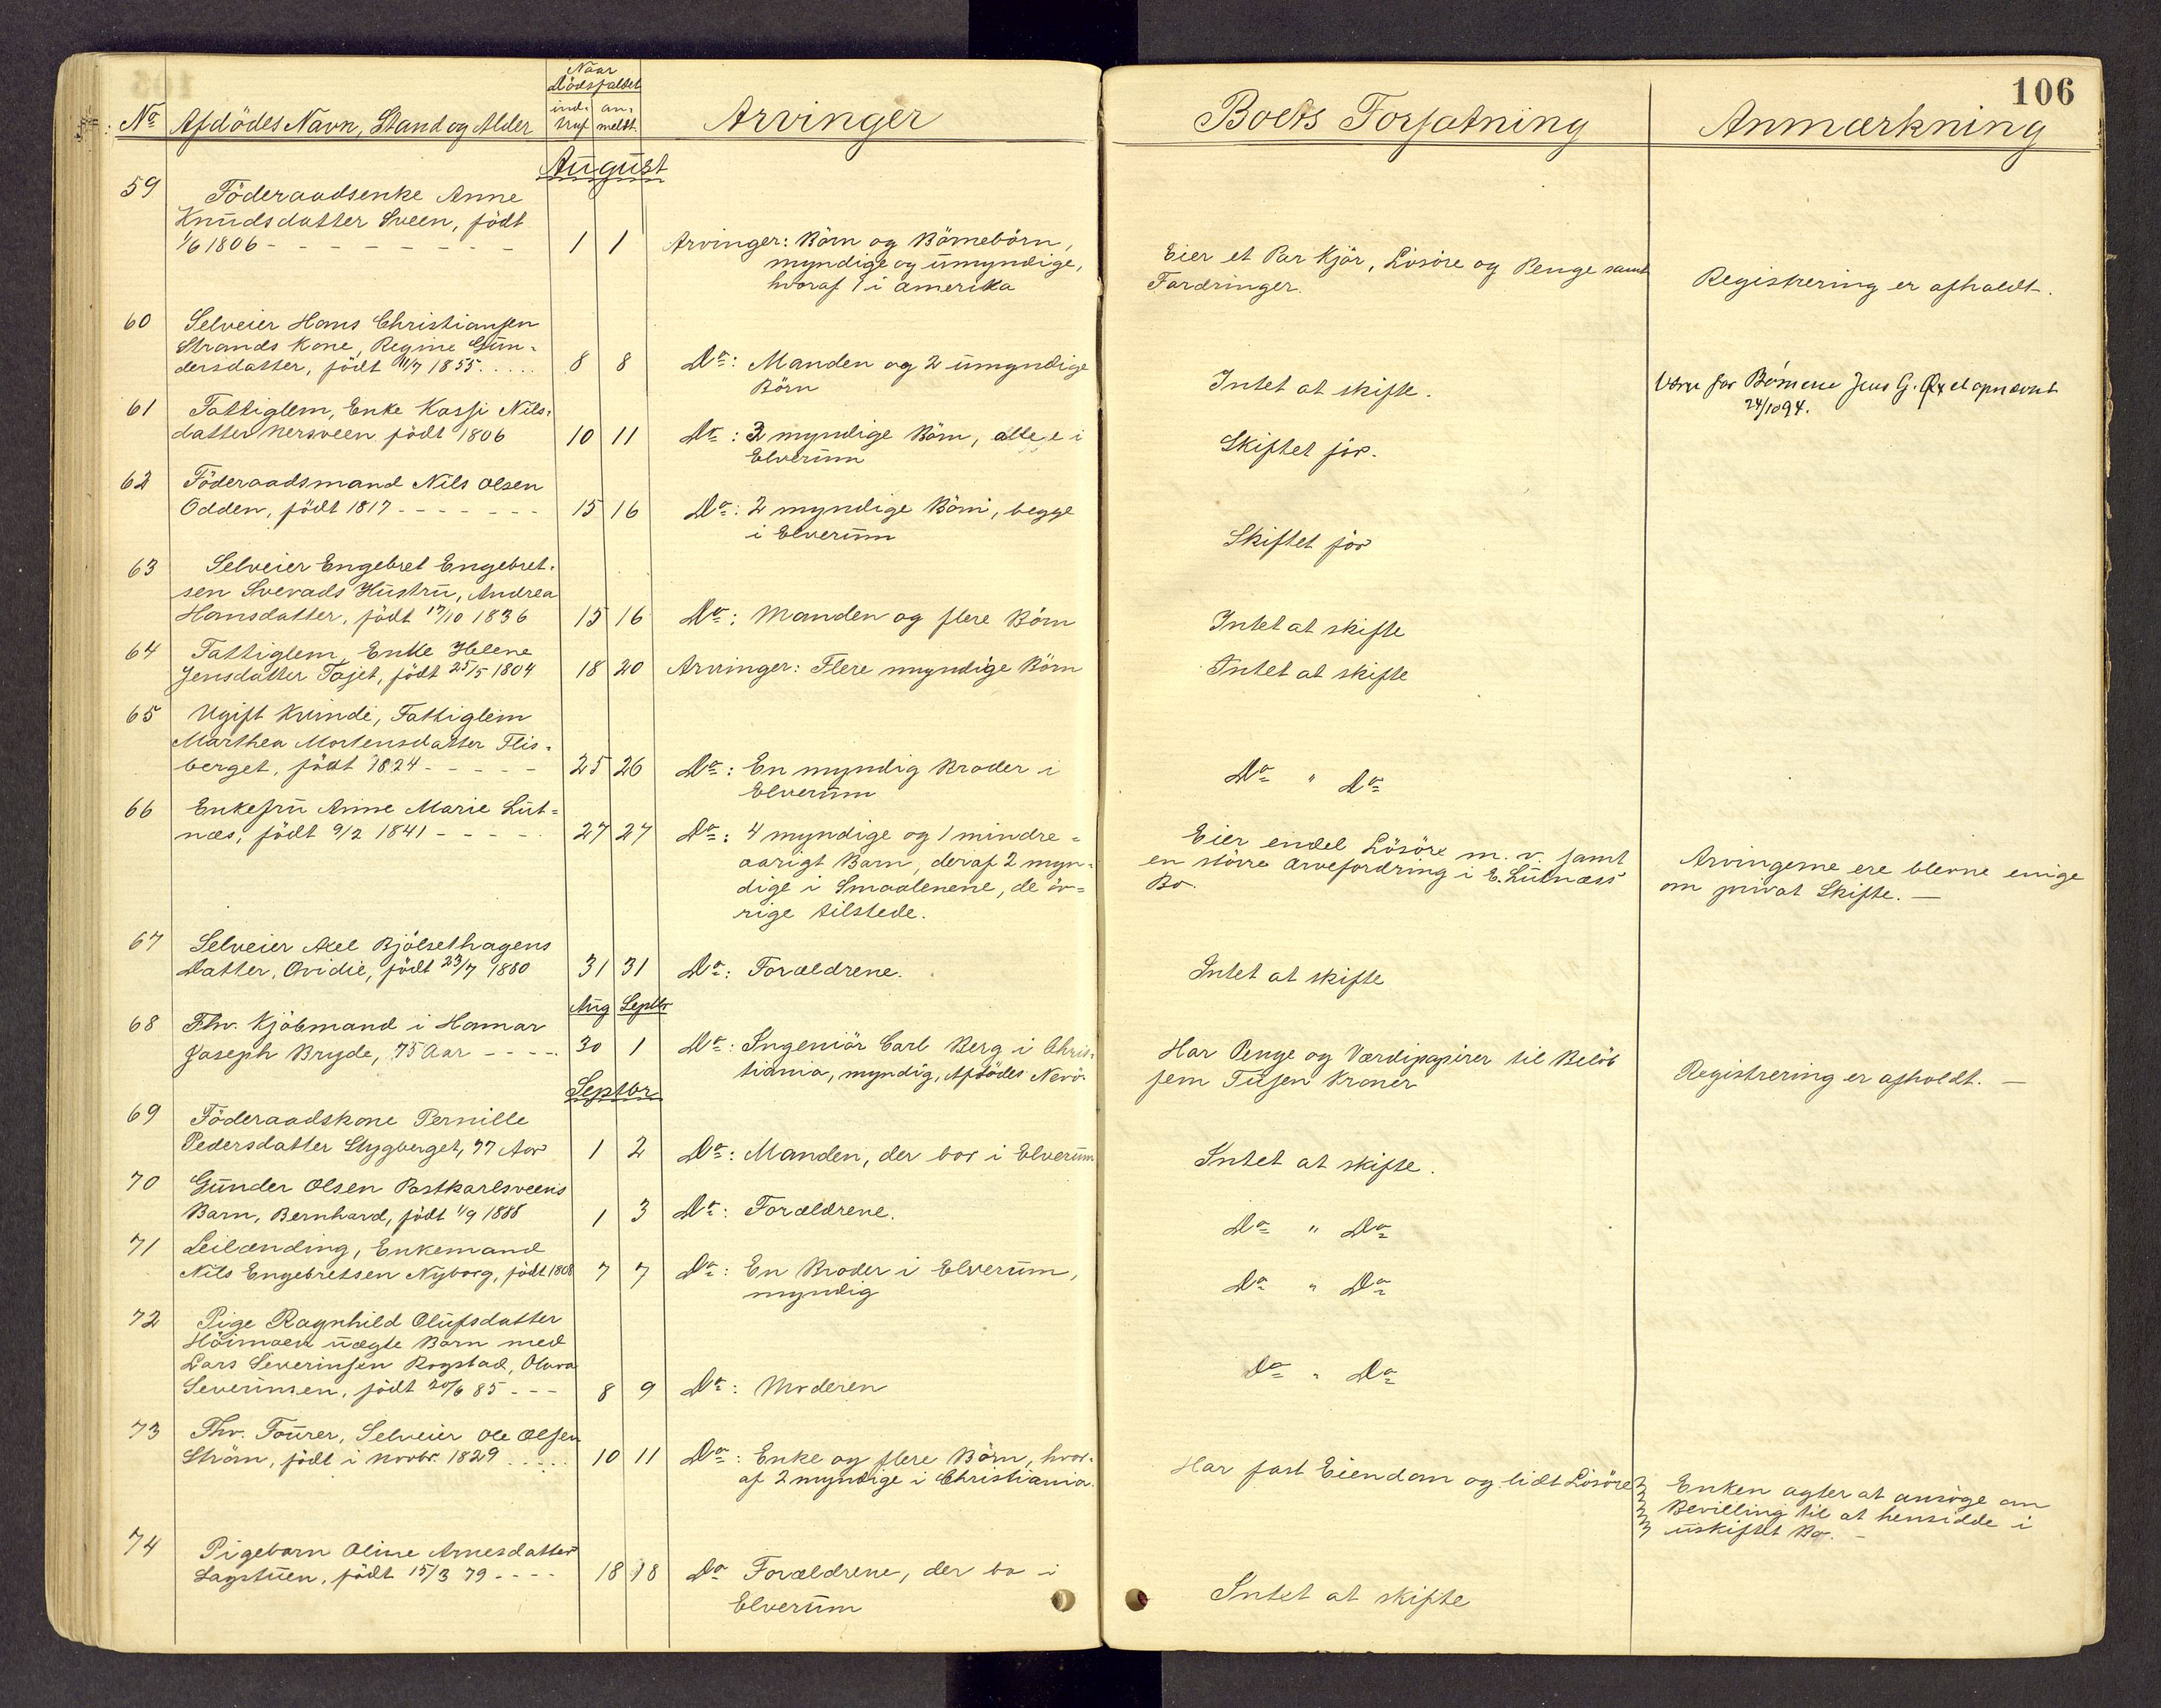 106
Naar
Dödsfaldet
No Afdödes Navn, Stand og Alder ind- truf an- meldt. Arvinger Boets Forfatning Anmærkning
August
59 Föderaadsenke Anne
Knudsdatter Sveen, födt
1/6 1806 - - - - - - - - 1 1 Arvinger: Börn og Börnebörn,
myndige og umyndige,
hvoraf 1 i Amerika
Eier et Par Kjör, Lösöre og Penge samt
Fordringer.
Registrering er afholdt.
60 Selveier Hans Christiansen
Strands Kone, Regine Gun-
dersdatter, födt 11/7 1855..... 8 8 Do: Manden og 2 umyndige
Börn
Intet at skifte.
Værge for Börnene Jens G. opnævnt
24/10 94.
61 Fattiglem, Enke Kassi Nils-
datter Nersveen födt 1806 10 11 Do: 3 myndige Börn, alle i
Elverum
Skiftet för.
62 Föderaadsmand Nils Olsen
Odden, födt 1817 - - - - - - - 15 16 Do: 2 myndige Börn, begge
i Elverum
Skiftet för
63 Selveier Engebret Engebret-
sen Sverads Hustru, Andrea
Hansdatter, födt 17/10 1836 15 16 Do: Manden og flere Börn
Intet at skifte
64 Fattiglem, Enke Helene
Jensdatter Fajet, födt 25/5 1804 18 20 Arvinger: Flere myndige Börn
Intet at skifte
65 Ugift Kvinde, Fattiglem
Marthea Mortensdatter Flis-
berget, födt 1824 - - - - - 25 26 Do: En myndig Broder i
Elverum
Do " Do
66 Enkefru Anne Marie Lut-
næs, födt 9/2 1841 - - - - - 27 27 Do: 4 myndige og 1 mindre-
aarigt Barn, deraf 2 myn-
dige i Smaalenene, de öv-
rige tilstede.
Eier endel Lösöre m. v. samt
en större Arvefordring i E. Lutnæss
Bo.
Arvingerne ere blevne enige
om privat Skifte. —
67 Selveier Axel Bjölsethagens
Datter, Ovidie, födt 23/7 1880 31 31 Do: Forældrene.
Intet at skifte
Aug Septbr
68 Fhv. Kjöbmand i Hamar
Joseph Bryde, 75 Aar - - - - 30 1 Do: Ingeniör Carl Berg i Chris-
tiania, myndig, Afdödes Nevö.
Har Penge og Værdipapirer til Belöb
fem Tusen Kroner
Registrering er afholdt. —
Septbr
69 Föderaadskone Pernille
Pedersdatter Stygberget, 77 Aar 1 2 Do: Manden, der bor i Elverum
Intet at skifte.
70 Gunder Olsen Postkarlsveens
Barn, Bernhard, födt 1/9 1888 1 3 Do: Forældrene.
Do " Do
71 Leilænding, Enkemand
Nils Engebretsen Nyborg, födt 1808 7 7 Do: En Broder i Elverum,
myndig
Do " Do
72 Pige Ragnhild Olufsdatter
Höimoen uægte Barn med
Lars Severinsen Rogstad,
Severinsen, födt 20/6 85 - - - 8 9 Do: Moderen
Do " Do
73 Fhv. Fourer, Selveier Ole Olsen
Ström, födt i Novbr. 1829 ..... 10 11 Do: Enke og flere Börn, hvor-
af 2 myndige i Christiania.
Har fast Eiendom og lidt Lösöre
Enken agter at ansöge om
Bevilling til at hensidde i
uskiftet Bo. -
74 Pigebarn Oline Arnesdatter
Lagstuen, födt 15/3 79 - - - - 18 18 Do Forældrene, der bo i
Elverum
Intet at skifte